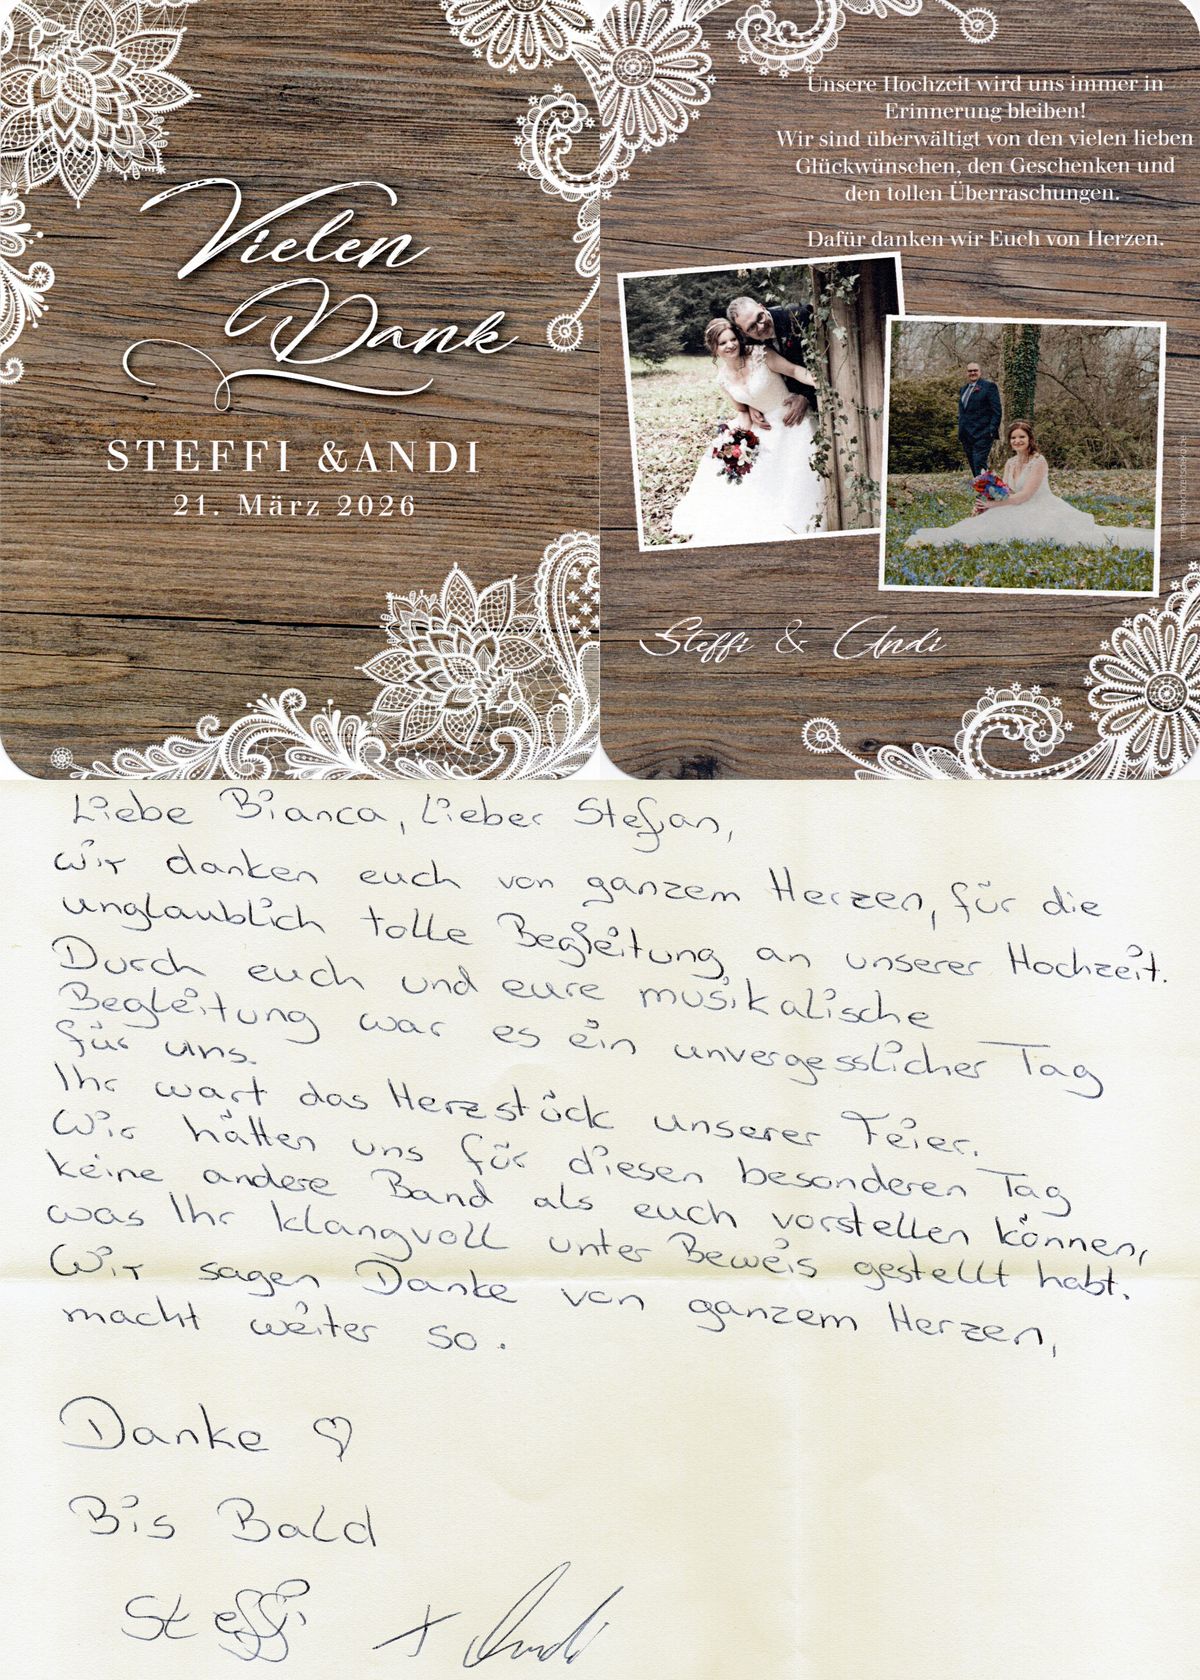 Vielen
Dank
STEFFI &ANDI
21. März 2026
Unsere Hochzeit wird uns immer in
Erinnerung bleiben!
Wir sind überwältigt von den vielen lieben
Glückwünschen, den Geschenken und
den tollen Überraschungen.
Dafür danken wir Euch von Herzen.
Steffi & Andi
Liebe Bianca, Lieber Stefan,
wir danken euch von ganzem Herzen, für die
unglaublich tolle Begleitung an unserer Hochzeit.
Durch euch und eure musikalische
Begleitung war es ein unvergesslicher Tag
für uns.
Ihr wart das Herzstück unserer Feier.
Wir hätten uns für diesen besonderen Tag
keine andere Band als euch vorstellen können,
was Ihr klangvoll unter Beweis gestellt habt.
Wir sagen Danke von ganzem Herzen,
macht weiter so.
Danke ♡
Bis Bald
Steffi + Andi